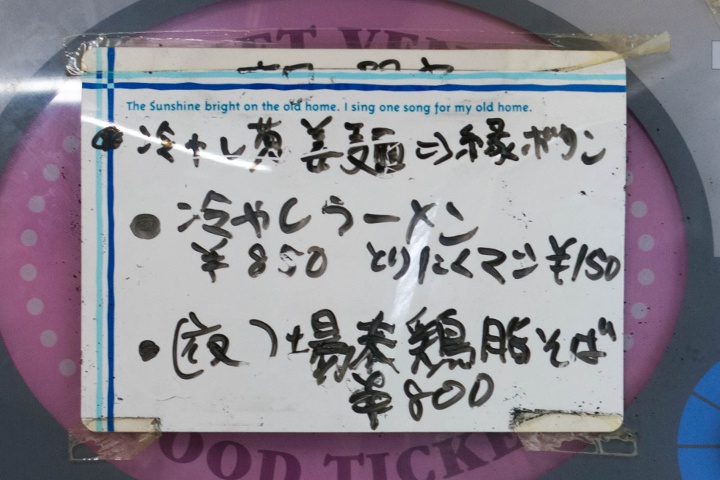 The Sunshine bright on the old home. I sing one song for my old home.
冷やし葱姜麺⇒緑ボタン
● 冷やしラーメン
¥850 とりにくマン¥150
● (夜) 鶏脂そば
¥800
OOD TICKE